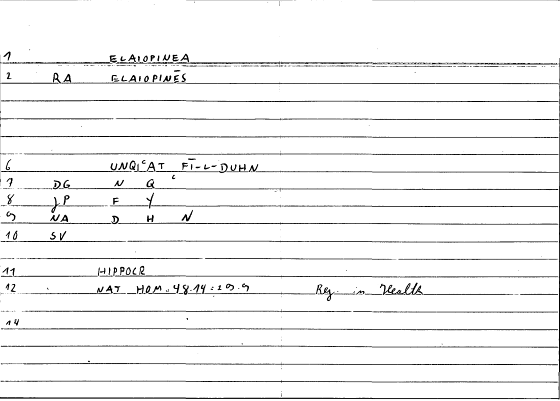 1 ELAIOPINEA
2 RA ELAIOPINĒS
6 UNQIʿAT FĪ-L-DUHN
7 DG N Q ʿ
8 JP F Y
9 NA D H N
10 SV
11 HIPPOCR
12 NAT. HOM. 48.14 = 29.9 Reg. in Health
14